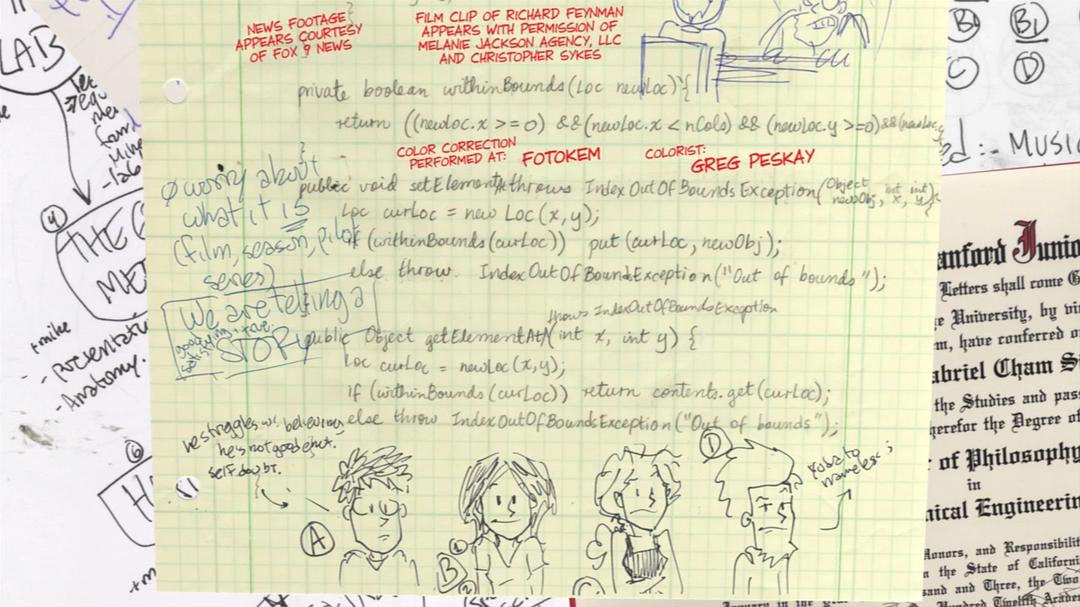 LAB
NEWS FOOTAGE
APPEARS COURTESY
OF FOX 9 NEWS
FILM CLIP OF RICHARD FEYNMAN
APPEARS WITH PERMISSION OF
MELANIE JACKSON AGENCY, LLC
AND CHRISTOPHER SYKES
private boolean withinBounds(Loc newLoc){
return ((newLoc.x >=0) &&(newLoc.x < nCols) && (newLoc.y >=0)&&(newLoc.y
}
COLOR CORRECTION
PERFORMED AT: FOTOKEM
COLORIST:
GREG PESKAY
public void setElement throws IndexOutOfBoundsException(Object newObj, int x, int y){
Loc curLoc = new Loc(x,y);
if (withinBounds(curLoc)) put (curLoc, newObj);
else throw. IndexOutOfBoundException("Out of bounds");
throws IndexOutOfBoundsException
public Object getElementAt(int x, int y) {
Loc curLoc = newLoc(x,y);
if (withinBounds(curLoc)) return contents.get(curLoc);
else throw IndexOutOfBoundsException("Out of bounds");
Ø worry about
what it is
(film, season, pilot
series)
We are telling a
good
satisfying
STORY
he struggles w. believing
he's not good enof.
self doubt.
A
B
1
2
D
4
THE
ME
+mike
- Presentat
- Anatomy.
6
H
+m
B1
B1
C
D
ed :- MUSI
anford Junio
Letters shall come G
e University, by vi
m, have conferred o
abriel Cham S
the Studies and pas
herefor the Degree o
of Philosophy
in
nical Engineerin
Honors, and Responsibilit
n the State of Californi
sand and Three, the Two
Hundred Twelfth Acade
January in the year